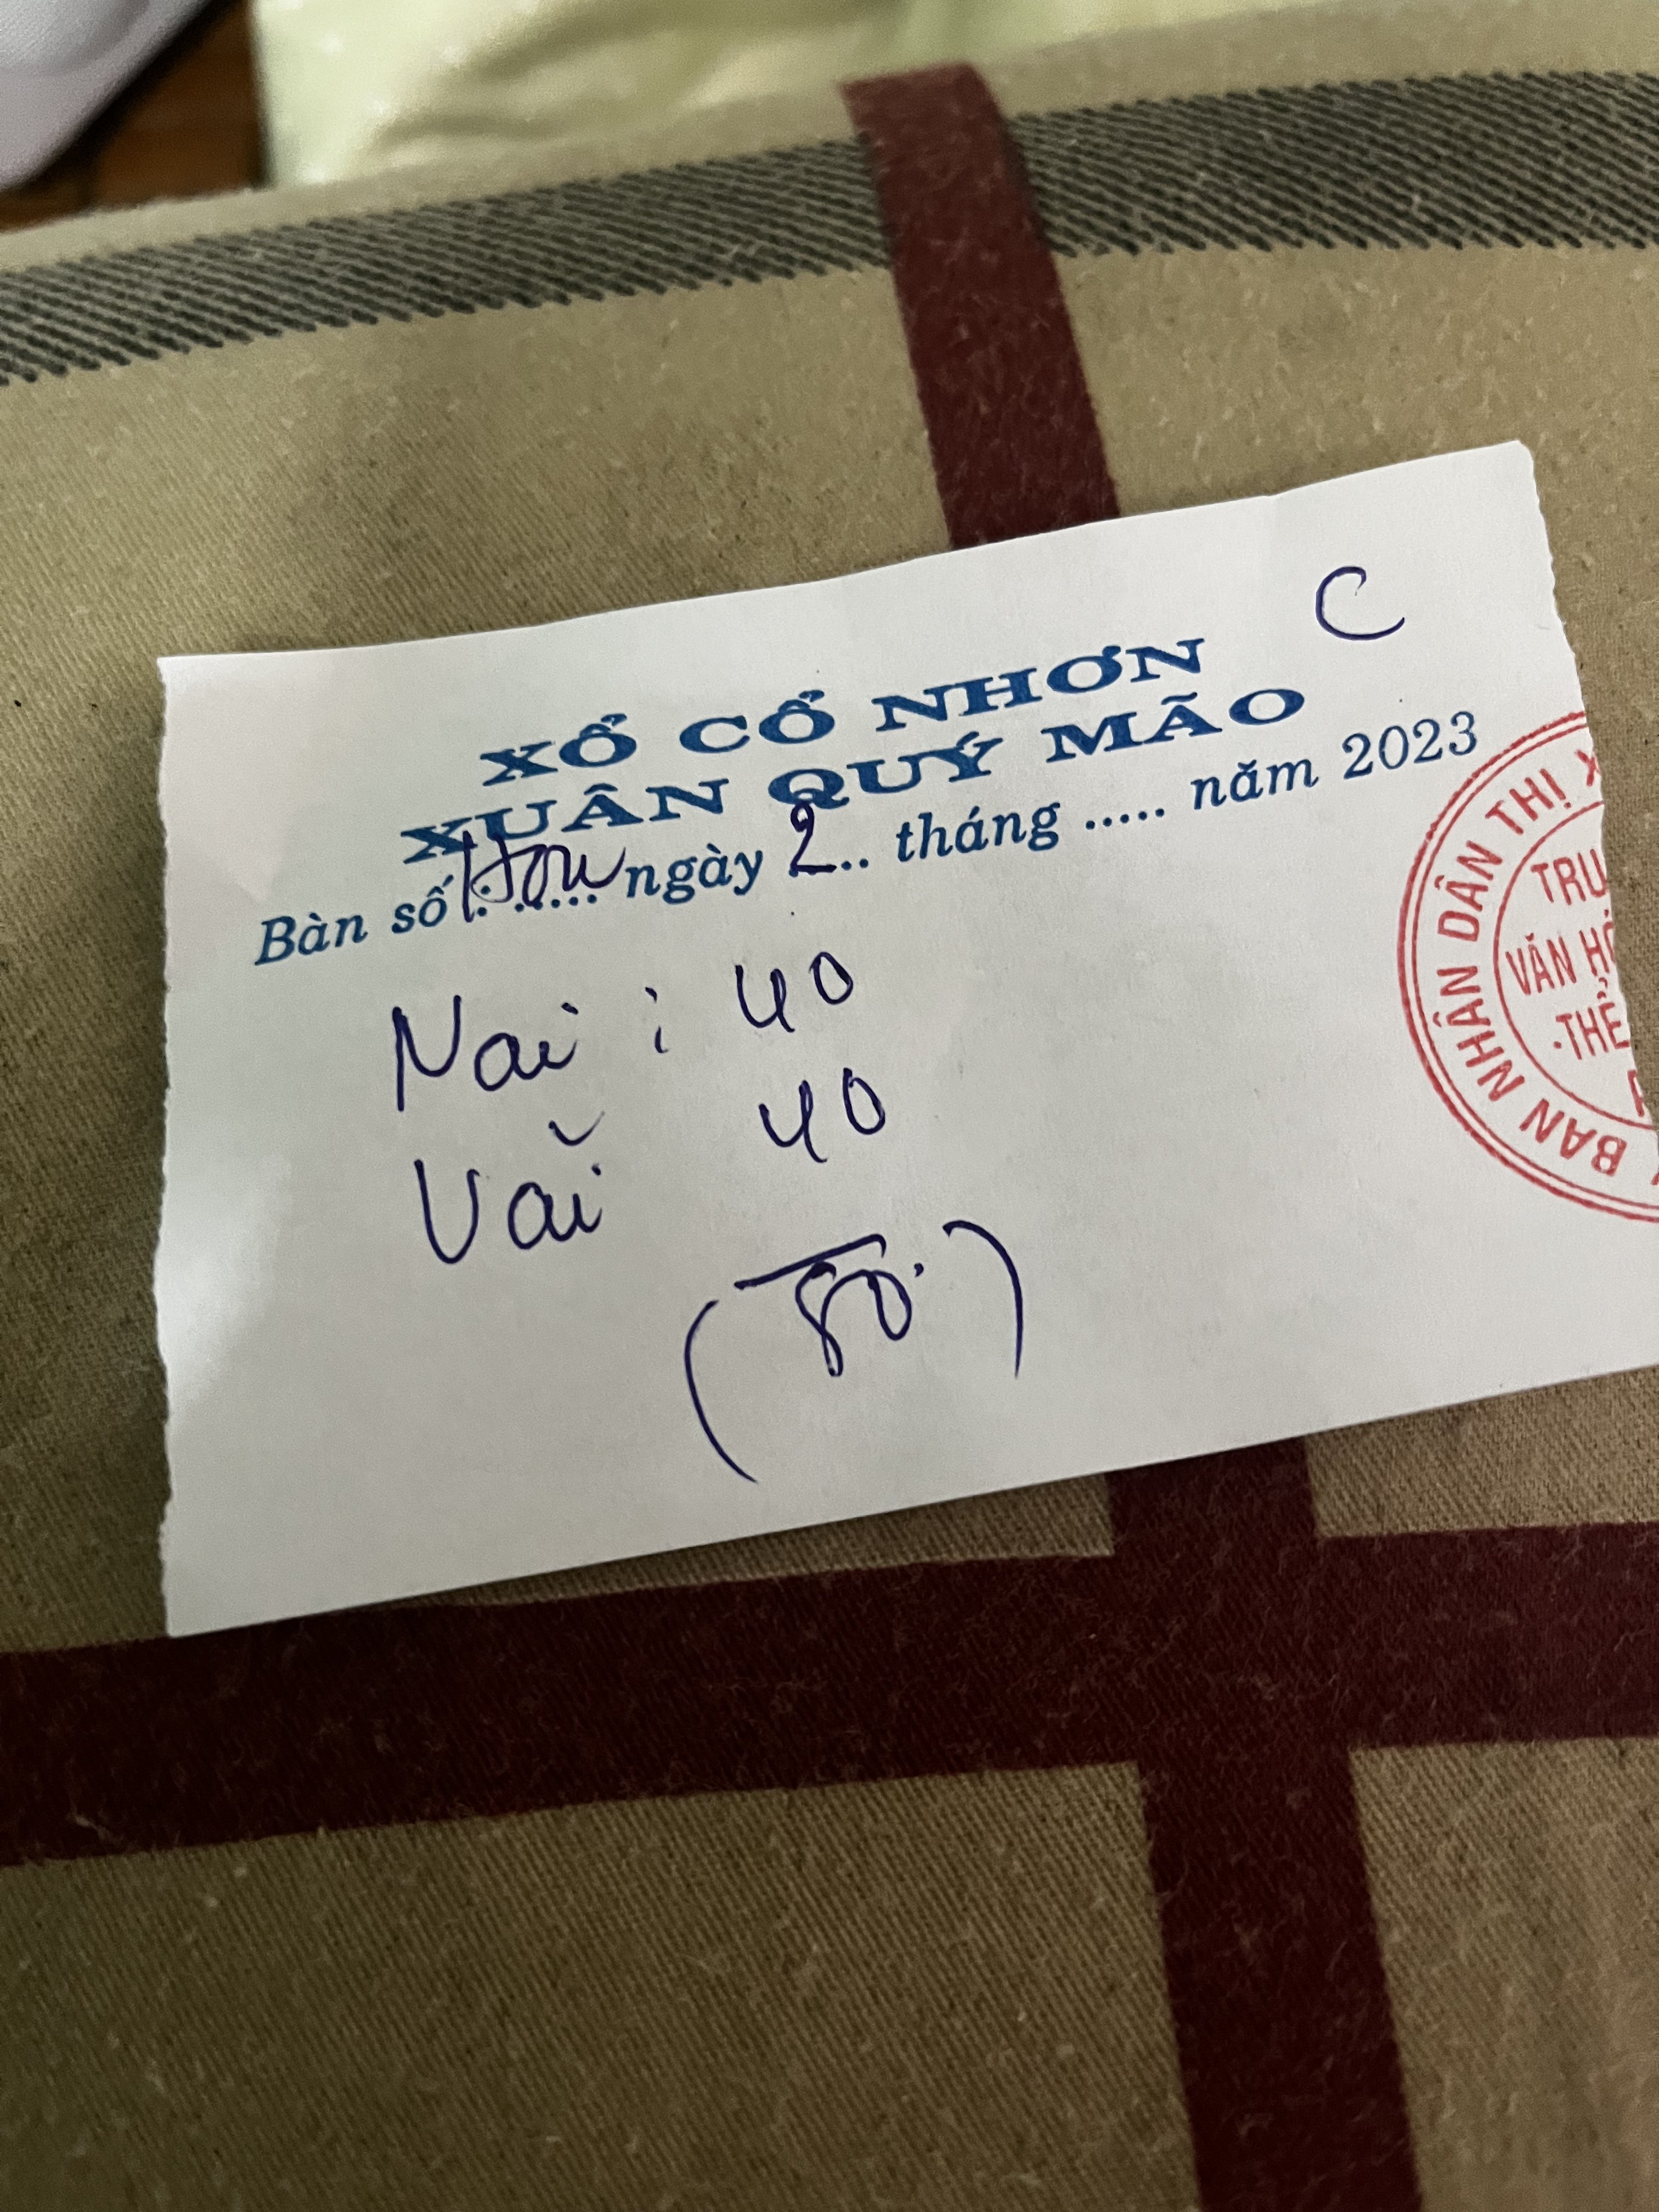 C
XỔ CỔ NHƠN
XUÂN QUÝ MÃO
Bàn số: ..... ngày 2... tháng ..... năm 2023
Nai : 40
Vải 40
(80.)
BAN NHÂN DÂN THỊ X
TRU
VĂN HÓ
THỂ